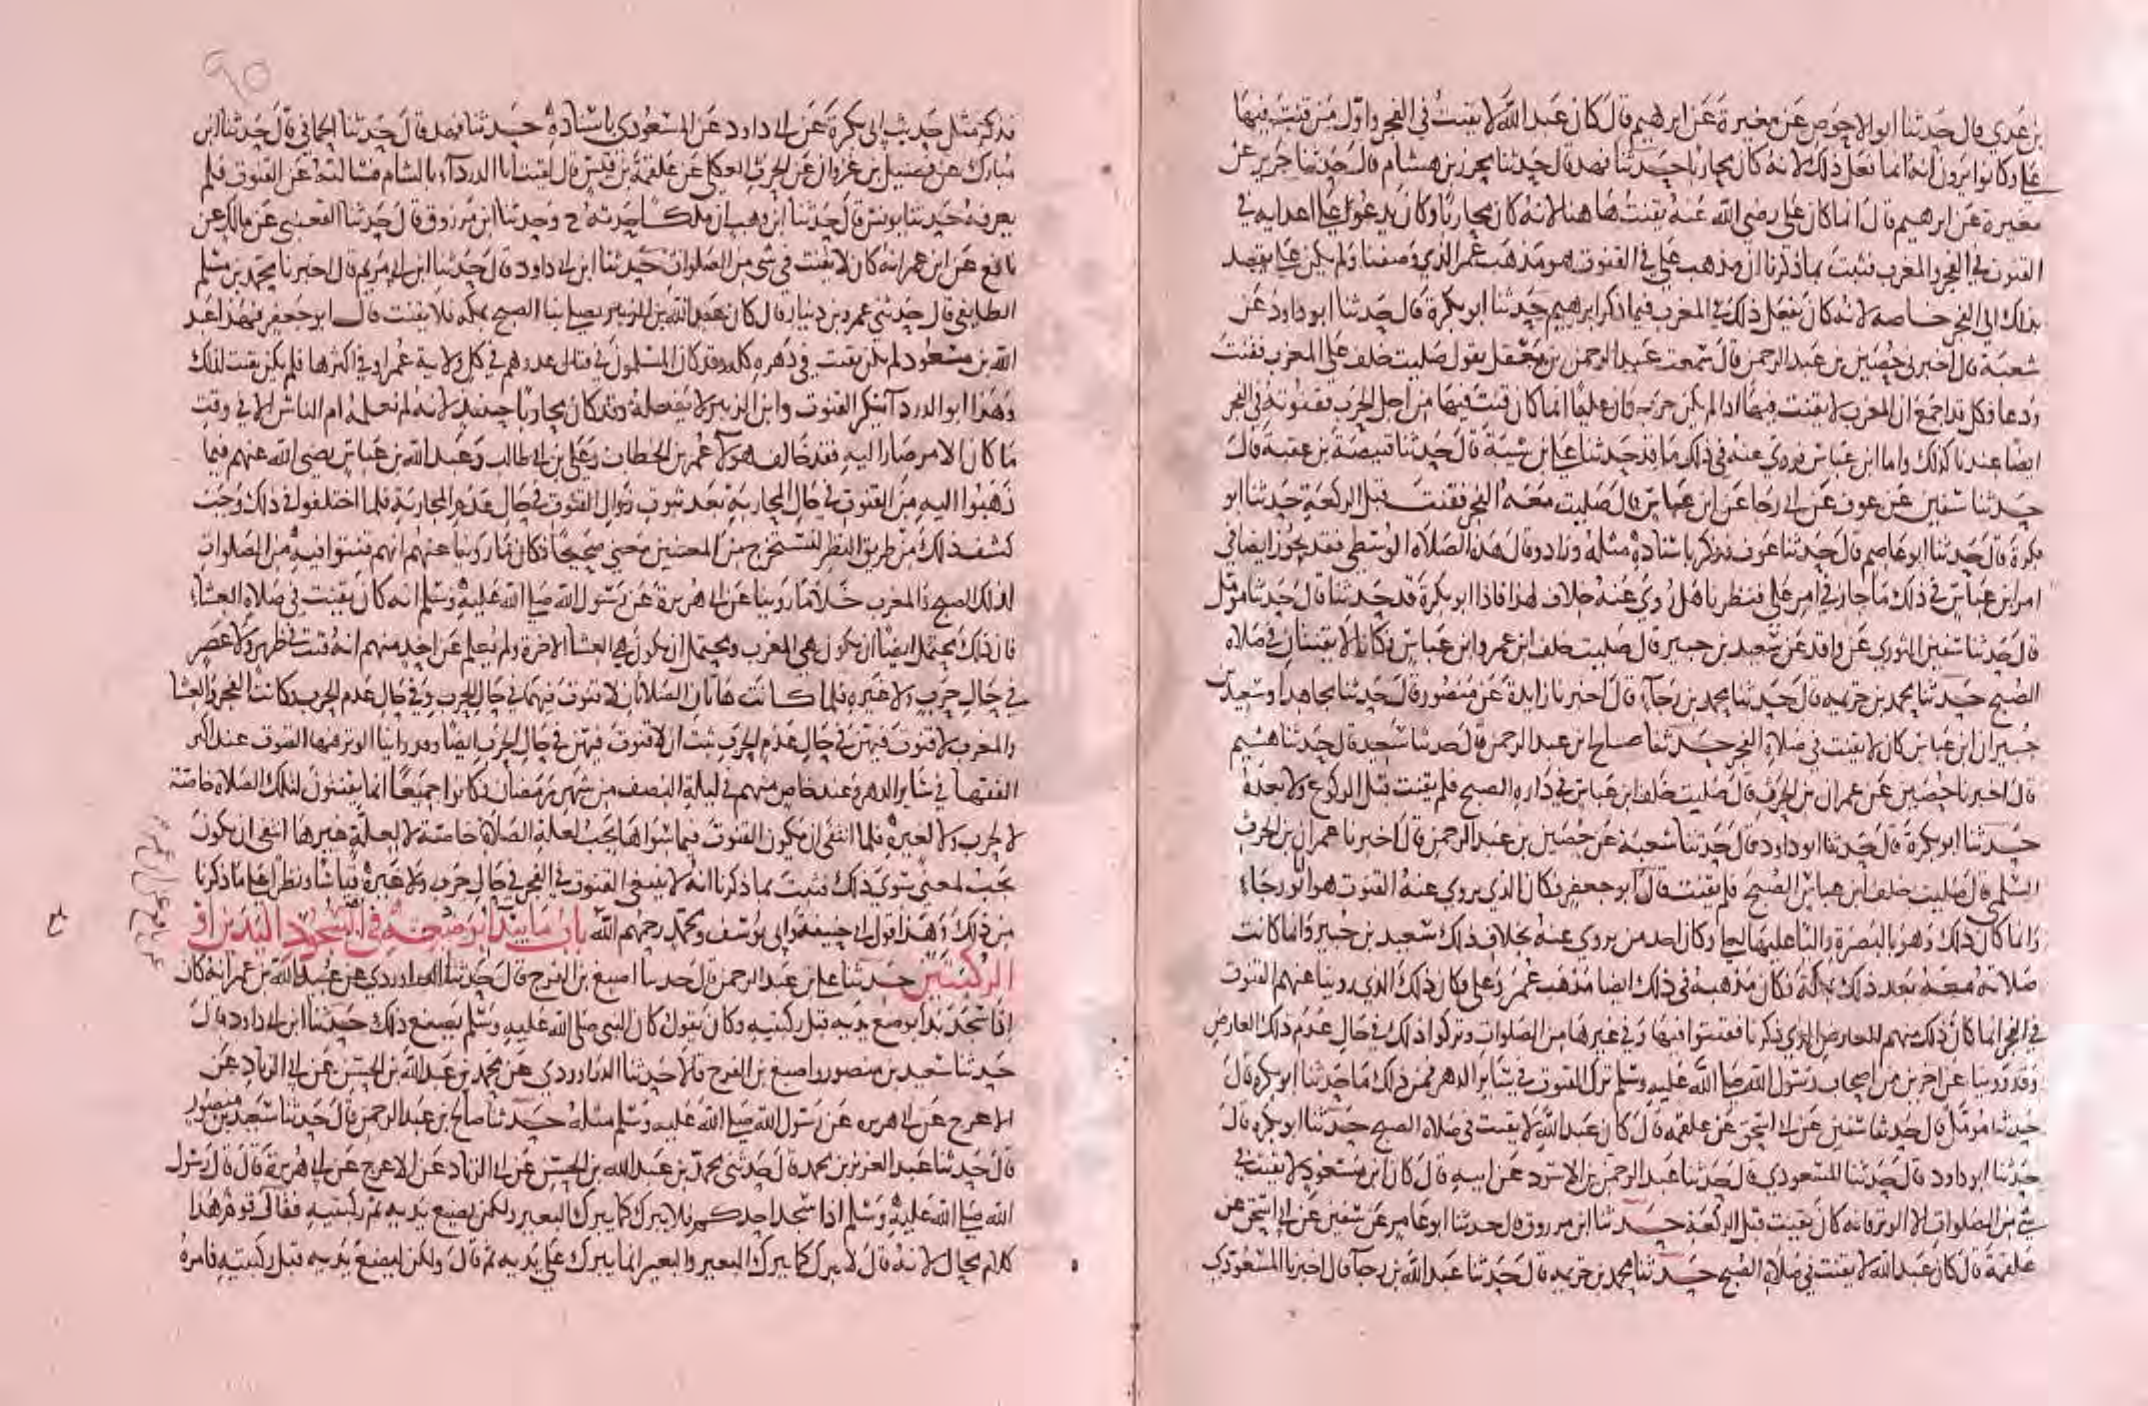 بن عدي قال حدثنا ابو الاحوص عن مغيرة عن ابرهيم قال كان عبد الله لا يقنت في الفجر واول من قنت فيها
علي وكانوا يرون انه انما فعل ذلك لانه كان محاربا حدثنا فهد قال حدثنا محرز بن هشام قال حدثنا جرير عن
مغيرة عن ابرهيم قال انما كان علي رضي الله عنه يقنت هاهنا لانه كان محاربا وكان يدعو على اعدايه في
القنوت في الفجر والمغرب فثبت بما ذكرنا ان مذهب علي في القنوت هو مذهب عمر الذي وصفنا ولم يكن علي يقصد
بذلك الى الفجر خاصة لانه كان يفعل ذلك في المغرب فيما ذكر ابرهيم حدثنا ابو بكرة قال حدثنا ابو داود عن
شعبة قال اخبرني حصين بن عبد الرحمن قال سمعت عبد الرحمن بن معقل يقول صليت خلف علي المغرب فقنت
ودعا فكل قد اجمع ان المغرب لا يقنت فيها اذا لم يكن حرب وان عليا انما كان قنت فيها من اجل الحرب فقنوته في الفجر
ايضا عندنا كذلك واما ابن عباس فروي عنه في ذلك ما قد حدثنا علي بن شيبة قال حدثنا قبيصة بن عقبة قال
حدثنا سفين عن عوف عن ابي رجا عن ابن عباس قال صليت معه الفجر فقنت قبل الركعة حدثنا ابو
بكرة قال حدثنا ابو عاصم قال حدثنا عوف فذكر باسناده مثله وزاد وقال هذه الصلاة الوسطى فقد يجوز ايضا في
امر ابن عباس في ذلك ما جاز في امر علي فنظرنا هل روي عنه خلاف لهذا فاذا ابو بكرة قد حدثنا قال حدثنا مؤمل
قال حدثنا سفين الثوري عن واقد عن سعيد بن جبير قال صليت خلف ابن عمر وابن عباس فكانا لا يقنتان في صلاة
الصبح حدثنا محمد بن خزيمة قال حدثنا محمد بن رجآء قال اخبرنا زايدة عن منصور قال حدثنا مجاهد او سعيد بن
جبير ان ابن عباس كان لا يقنت في صلاة الفجر حدثنا صالح ابن عبد الرحمن قال حدثنا سعيد قال حدثنا هشيم
قال اخبرنا حصين عن عمران بن الحرث قال صليت خلف ابن عباس في داره الصبح فلم يقنت قبل الركوع ولا بعده
حدثنا ابو بكرة قال حدثنا ابو داود قال حدثنا شعبة عن حصين بن عبد الرحمن قال اخبرنا عمران بن الحرث
السلمي قال صليت خلف ابن عباس الصبح فلم يقنت قال ابو جعفر فكان الذي يروي عنه القنوت هو ابو رجاء
وانما كان ذلك وهو بالبصرة واليا عليها لعلي وكان احد من يروي عنه بخلاف ذلك سعيد بن جبير وانما كانت
صلاته معه بعد ذلك بمكة فكان مذهبه في ذلك ايضا مذهب عمر وعلي فكان ذلك الذي روينا عنهم القنوت
في الفجر انما كان ذلك منهم للعارض الذي ذكرنا فقنتوا فيها وفي غيرها من الصلوات وتركوا ذلك في حال عدم ذلك العارض
وقد روينا عن اخرين من اصحاب رسول الله صلى الله عليه وسلم ترك القنوت في ساير الدهر فمن ذلك ما حدثنا ابو بكرة قال
حدثنا مؤمل قال حدثنا سفين عن ابي اسحق عن علقمة قال كان عبد الله لا يقنت في صلاة الصبح حدثنا ابو بكرة قال
حدثنا ابو داود قال حدثنا المسعودي قال حدثنا عبد الرحمن بن الاسود عن ابيه قال كان ابن مسعود لا يقنت في
شي من الصلوات الا الوتر فانه كان يقنت قبل الركعة حدثنا ابن مرزوق قال حدثنا ابو عامر عن سفين عن ابي اسحق عن
علقمة قال كان عبد الله لا يقنت في صلاة الصبح حدثنا محمد بن خزيمة قال حدثنا عبد الله بن رجآ قال اخبرنا المسعودي
٩٥
فذكر مثل حديث ابي بكرة عن ابي داود عن المسعودي باسناده حدثنا فهد قال حدثنا الحماني قال حدثنا ابن
مبارك عن فضيل بن غزوان عن الحرث العكلي عن علقمة بن قيس قال لقيت ابا الدردآء بالشام فسالته عن القنوت فلم
يعرفه حدثنا يونس قال حدثنا ابن وهب ان ملكا حدثه ح وحدثنا ابن مرزوق قال حدثنا القعنبي عن مالك عن
نافع عن ابن عمر انه كان لا يقنت في شي من الصلوات حدثنا ابن ابي داود قال حدثنا ابن ابي مريم قال اخبرنا محمد بن مسلم
الطايفي قال حدثني عمرو بن دينار قال كان عبد الله بن الزبير يصلي بنا الصبح بمكة فلا يقنت قال ابو جعفر فهذا عبد
الله بن مسعود لم يكن يقنت في دهره كله وقد كان المسلمون في قتال عدوهم في كل ولاية عمر او في اكثرها فلم يكن يقنت لذلك
وهذا ابو الدردآ ينكر القنوت وابن الزبير لا يفعله وقد كان محاربا حينيذ لانه لم نعلمه ام الناس الا في وقت
ما كان الامر صار اليه فقد خالف هولآ عمر بن الخطاب وعلي بن ابي طالب وعبد الله بن عباس رضي الله عنهم فيما
ذهبوا اليه من القنوت في حال المحاربة بعد ثبوت زوال القنوت في حال عدم المحاربة فلما اختلفوا في ذلك وجب
كشف ذلك من طريق النظر لنستخرج من المعنيين معنى صحيحا فكان ما روينا عنهم انهم قنتوا فيه من الصلوات
لذلك الصبح والمغرب خلا ما روينا عن ابي هريرة عن رسول الله صلى الله عليه وسلم انه كان يقنت في صلاة العشاء
فان ذلك يحتمل ايضا ان يكون هي المغرب ويحتمل ان يكون هي العشا الاخرة ولم يعلم عن احد منهم انه قنت في ظهر ولا عصر
في حال حرب ولا غيره فلما كانت هاتان الصلاتان لا قنوت فيهما في حال الحرب وفي حال عدم الحرب وكانت الفجر والعشا
والمغرب لا قنوت فيهن في حال عدم الحرب ثبت ان لا قنوت فيهن في حال الحرب ايضا وقد راينا الوتر فيها القنوت عند اكثر
الفقها في ساير الدهر وعند خاص منهم في ليلة النصف من شهر رمضان فكانوا جميعا انما يقنتون لتلك الصلاة خاصة
لا لحرب ولا لغيره فلما انتفى ان يكون القنوت فيما سواها يجب لعلة الصلاة خاصة لا لعلة غيرها انتفى ان يكون
يجب لمعنى سوى ذلك فثبت بما ذكرنا انه لا ينبغي القنوت في الفجر في حال حرب ولا غيره قياسا ونظرا على ما ذكرنا
من ذلك وهذا قول ابي حنيفة وابي يوسف ومحمد رحمهم الله باب ما يبدأ بوضعه في السجود اليدين او
الركبتين حدثنا علي بن عبد الرحمن قال حدثنا اصبغ بن الفرج قال حدثنا الدراوردي عن عبيد الله بن عمر انه كان
اذا سجد بدا بوضع يديه قبل ركبتيه وكان يقول كان النبي صلى الله عليه وسلم يصنع ذلك حدثنا ابن ابي داود قال
حدثنا سعيد بن منصور واصبغ بن الفرج قالا حدثنا الدراوردي عن محمد بن عبد الله بن الحسن عن ابي الزناد عن
الاعرج عن ابي هريره عن رسول الله صلى الله عليه وسلم مثله حدثنا صالح بن عبد الرحمن قال حدثنا سعيد بن منصور
قال حدثنا عبد العزيز بن محمد قال حدثني محمد بن عبد الله بن الحسن عن ابي الزناد عن الاعرج عن ابي هريرة قال قال رسول
الله صلى الله عليه وسلم اذا سجد احدكم فلا يبرك كما يبرك البعير ولكن يضع يديه ثم ركبتيه فقال قوم هذا
كلام محال لانه قال لا يبرك كما يبرك البعير والبعير انما يبرك على يديه ثم قال ولكن ليضع يديه قبل ركبتيه فامره